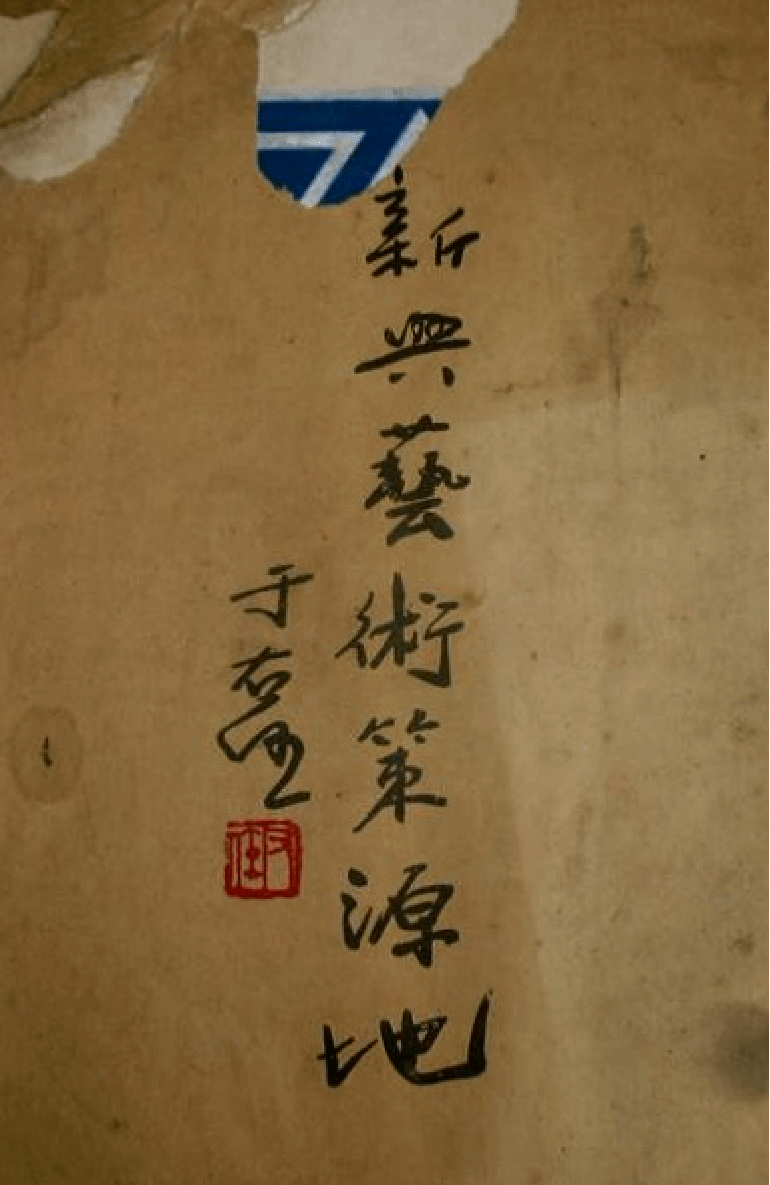 新興藝術策源地
于右任
右任